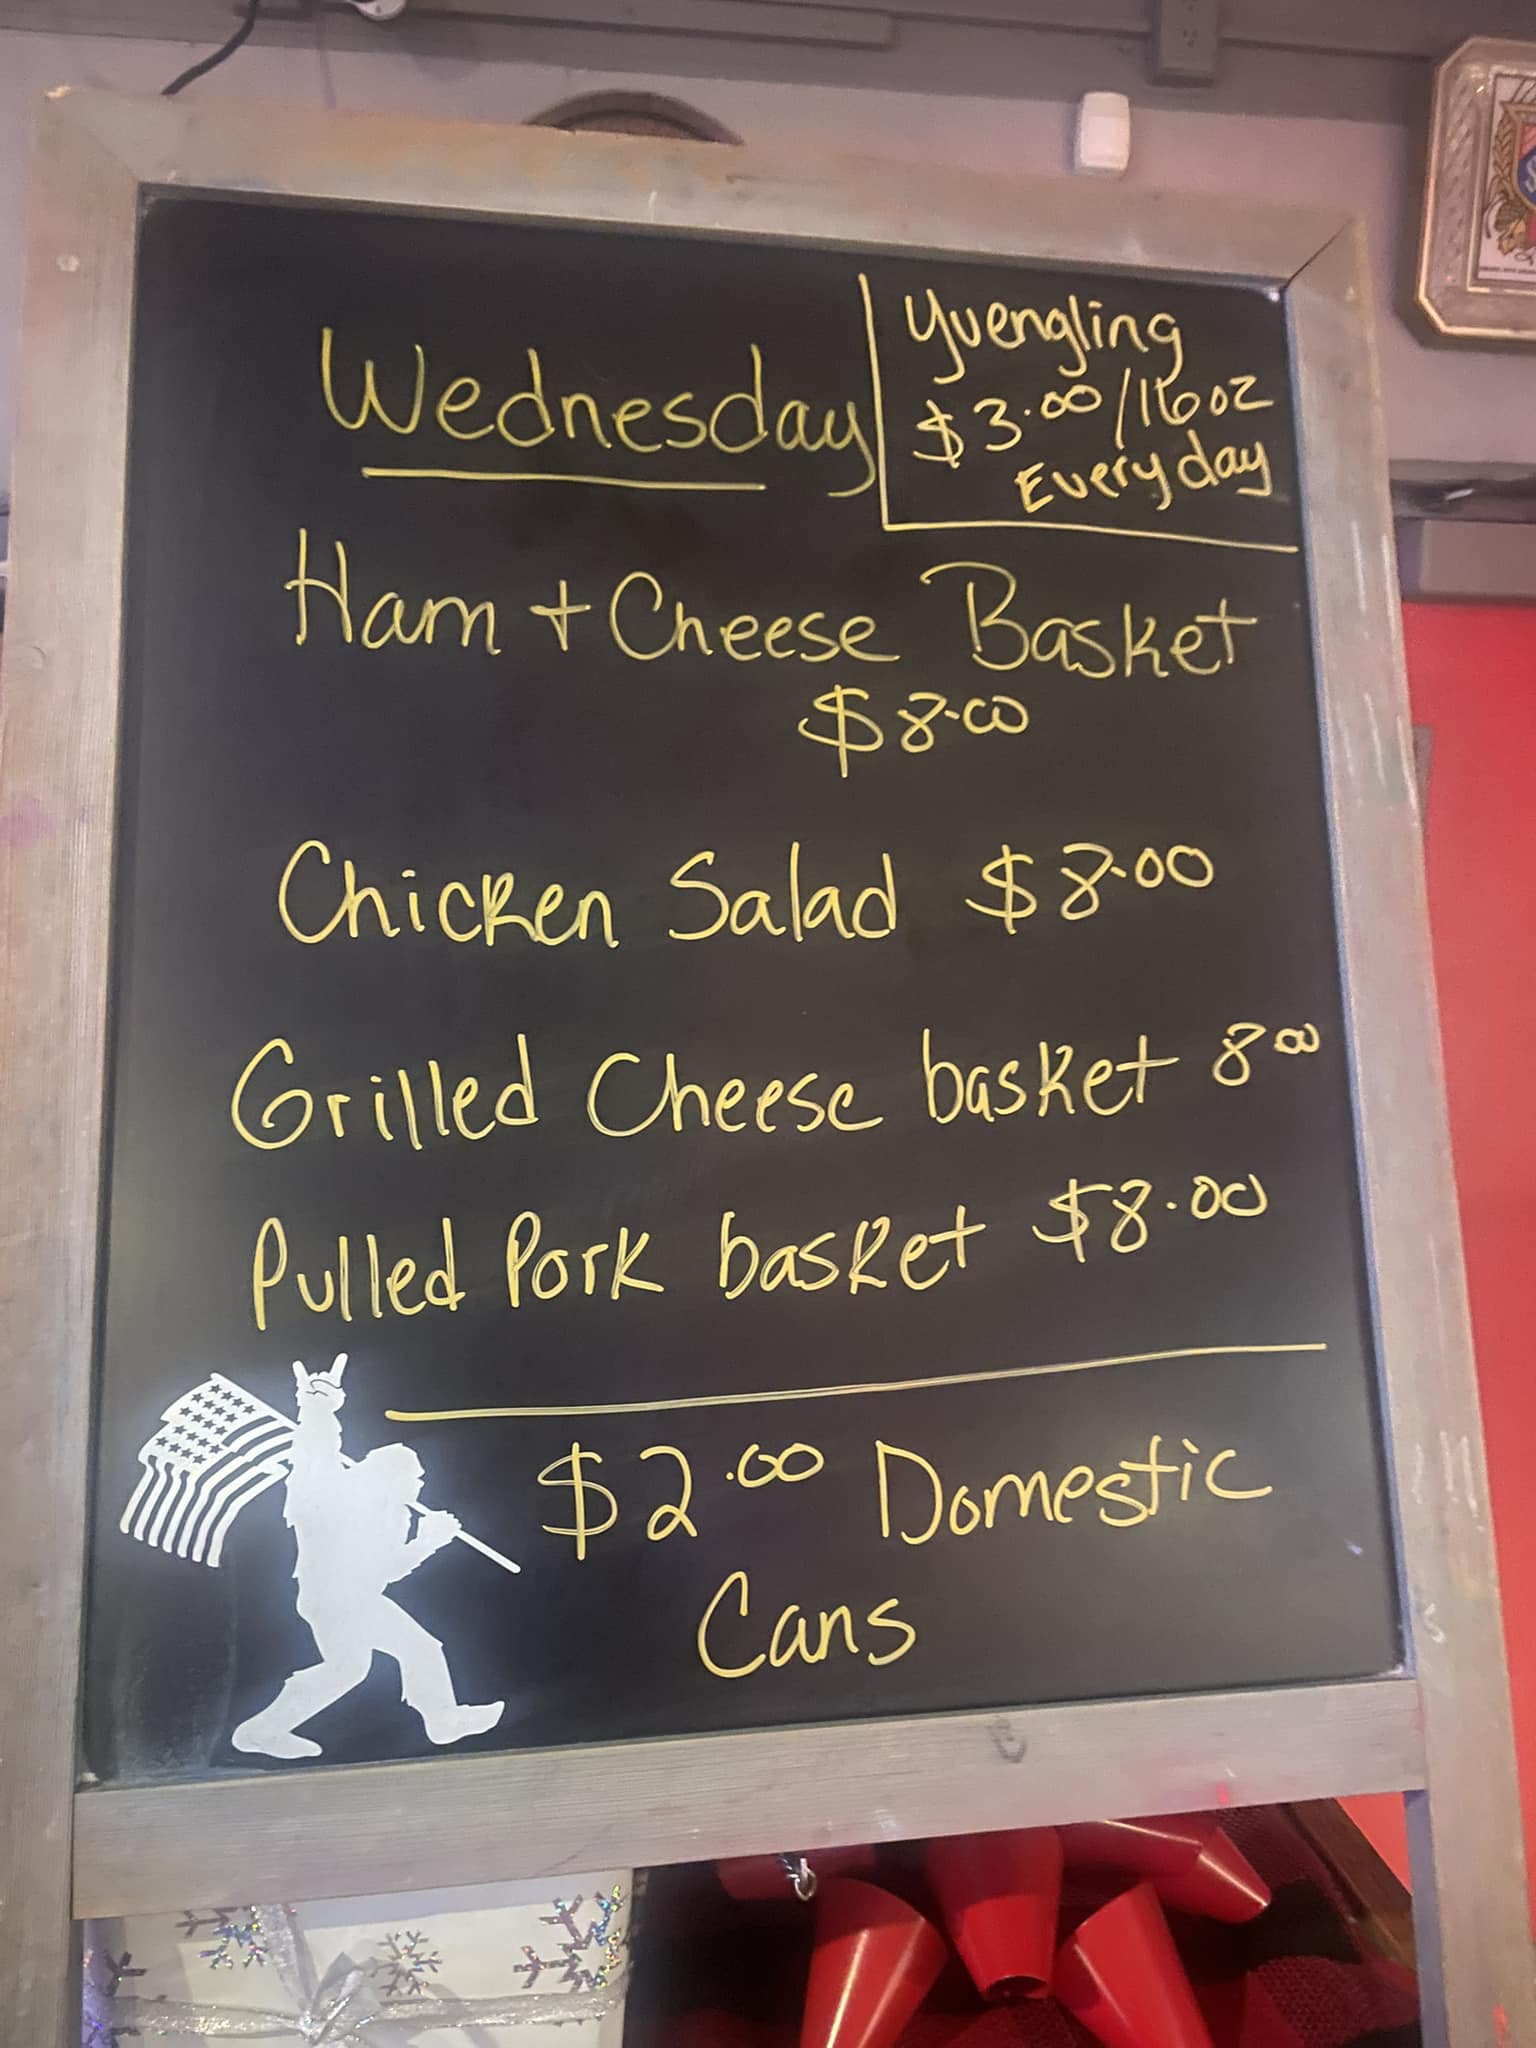 Wednesday
Yuengling
$3.00/16oz
Everyday
Ham + Cheese Basket
$8.00
Chicken Salad $8.00
Grilled Cheese basket 8 00
Pulled Pork basket $8.00
$2.00 Domestic
Cans